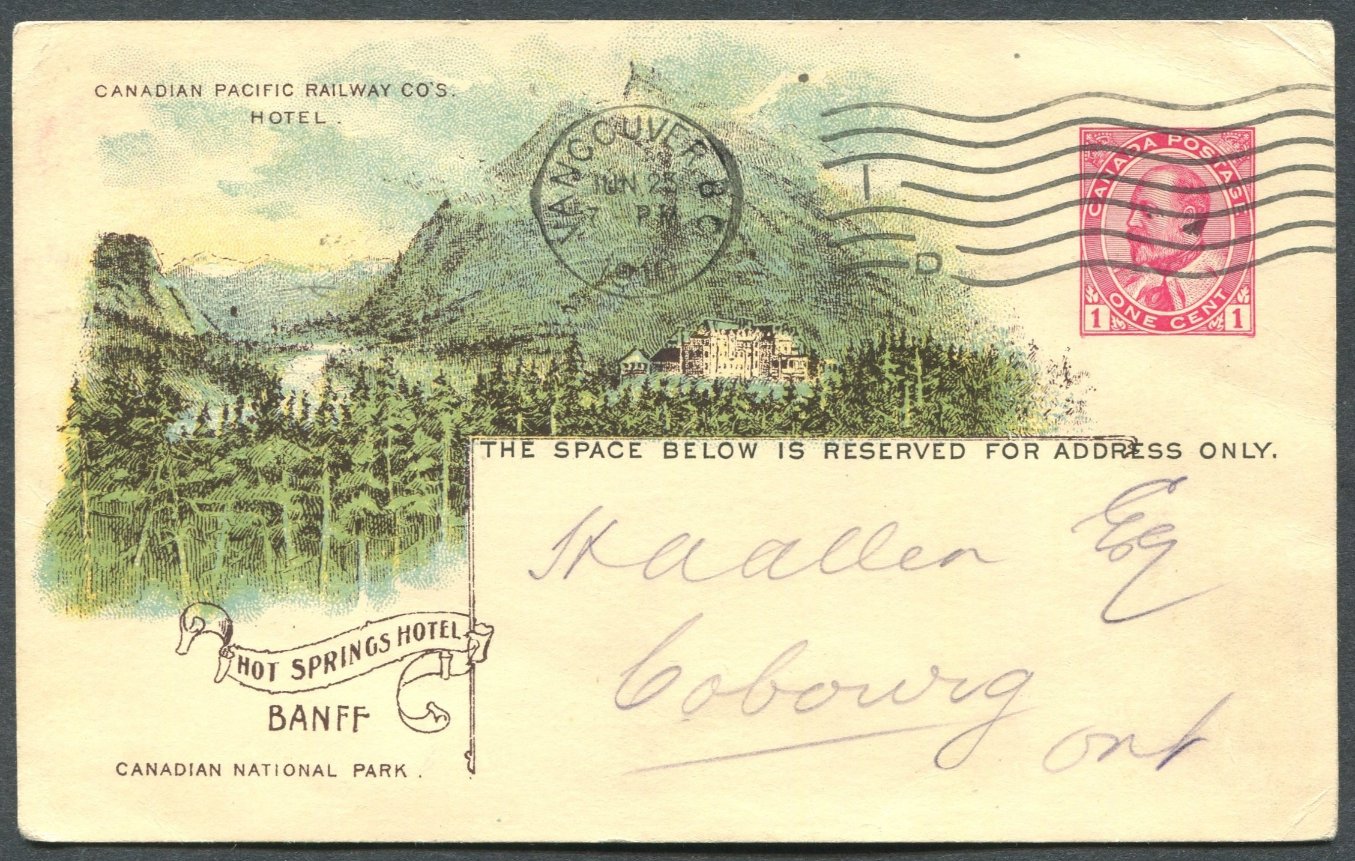 CANADIAN PACIFIC RAILWAY CO'S.
HOTEL.
VANCOUVER. B C
JUN 25
7 PM
I
D
CANADA POSTAGE
ONE CENT
1 1
THE SPACE BELOW IS RESERVED FOR ADDRESS ONLY.
Allen Esq
Cobourg
Ont
HOT SPRINGS HOTEL
BANFF
CANADIAN NATIONAL PARK.